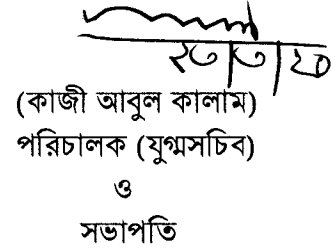 (কাজী আবুল কালাম)
পরিচালক (যুগ্মসচিব)
ও
সভাপতি